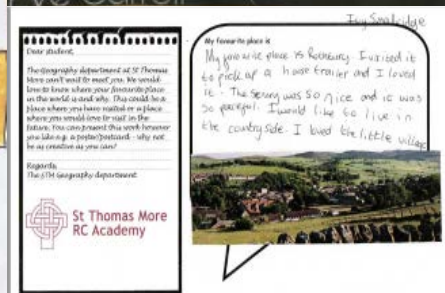 Dear student,
The Geography department at St Thomas
More can't wait to meet you. We would
love to know where your favourite place
in the world is and why. This could be a
place where you have visited or a place
where you would love to visit in the
future. You can present this work however
you like e.g. a poster/postcard - why not
be as creative as you can?
Regards,
The STM Geography department
St Thomas More
RC Academy
Ivy Smallridge
My favourite place is
My favourite place is Rothbury. I visited it
to pick up a horse trailer and I loved
it. The senery was so nice and it was
so peacful. I would like to live in
the countryside. I loved the little village